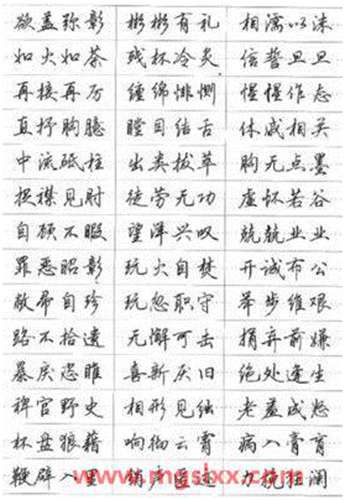 欲盖弥彰 彬彬有礼 相濡以沫
如火如荼 残杯冷炙 信誓旦旦
再接再厉 缠绵悱恻 惺惺作态
直抒胸臆 瞠目结舌 休戚相关
中流砥柱 出类拔萃 胸无点墨
捉襟见肘 徒劳无功 虚怀若谷
自顾不暇 望洋兴叹 兢兢业业
罪恶昭彰 玩火自焚 开诚布公
敝帚自珍 玩忽职守 举步维艰
路不拾遗 无懈可击 捐弃前嫌
暴戾恣睢 喜新厌旧 绝处逢生
稗官野史 相形见绌 老羞成怒
杯盘狼藉 响彻云霄 病入膏肓
鞭辟入里 销声匿迹 力挽狂澜